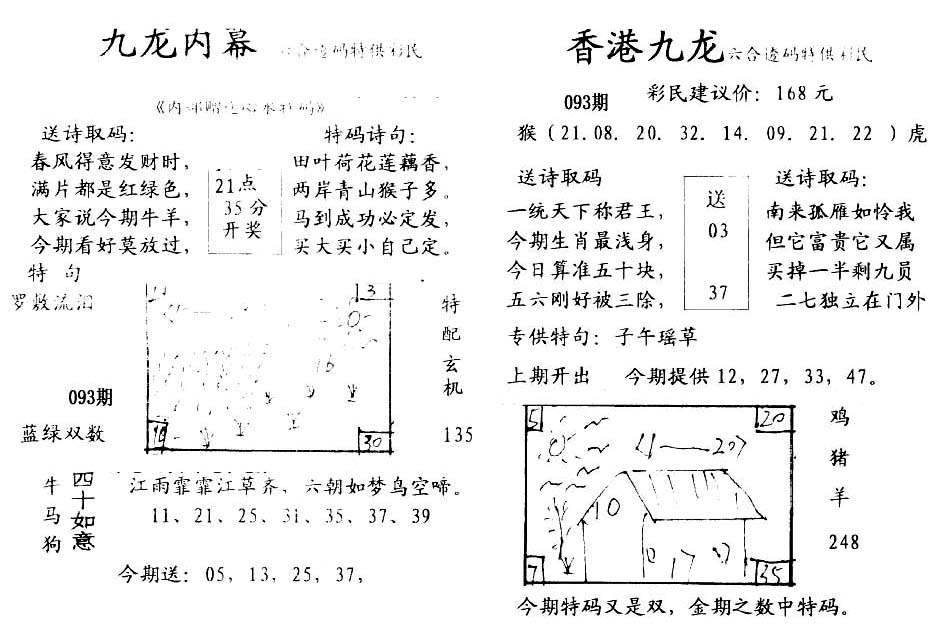 九龙内幕
六合透码特供彩民
送诗取码:
春风得意发财时,
满片都是红绿色,
大家说今期牛羊,
今期看好莫放过,
21点
35分
开奖
特码诗句:
田叶荷花莲藕香,
两岸青山猴子多。
马到成功必定发,
买大买小自己定。
特 句
罗敷流泪
093期
蓝绿双数
13
16
30
特配玄机
135
牛马狗
四十如意
江雨霏霏江草齐, 六朝如梦鸟空啼。
11、21、25、31、35、37、39
今期送: 05, 13, 25, 37,
香港九龙
六合透码特供彩民
093期
彩民建议价: 168元
猴(21.08. 20. 32. 14. 09. 21. 22 )虎
送诗取码
一统天下称君王,
今期生肖最浅身,
今日算准五十块,
五六刚好被三除,
送
03
37
送诗取码:
南来孤雁如怜我
但它富贵它又属
买掉一半剩九员
二七独立在门外
专供特句: 子午瑶草
上期开出 今期提供12, 27, 33, 47。
5
20
10
17
7
35
鸡
猪
羊
248
今期特码又是双, 金期之数中特码。